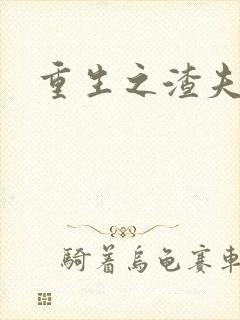 重生之渣夫
騎着烏龟賽車